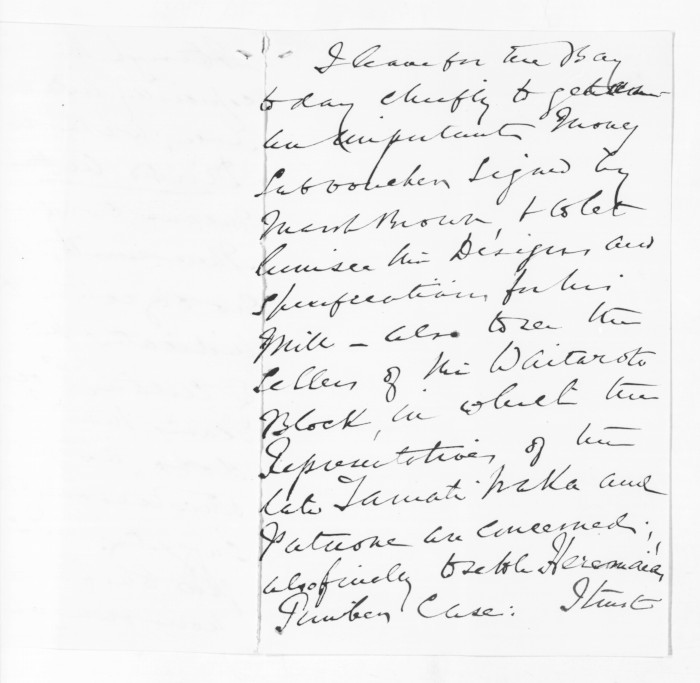 I leave for the Bay
to day chiefly to get
an important Money
Subvoucher signed by
Marsh Brown, & to let
him see his Designs and
Specifications for his
Mill – also to see the
Sellers of the Waitaroto
Block, in which the
Representatives of the
late Tamati Waka and
Patuone are concerned;
also finely to settle Heremaia's
Timber Case: I trust